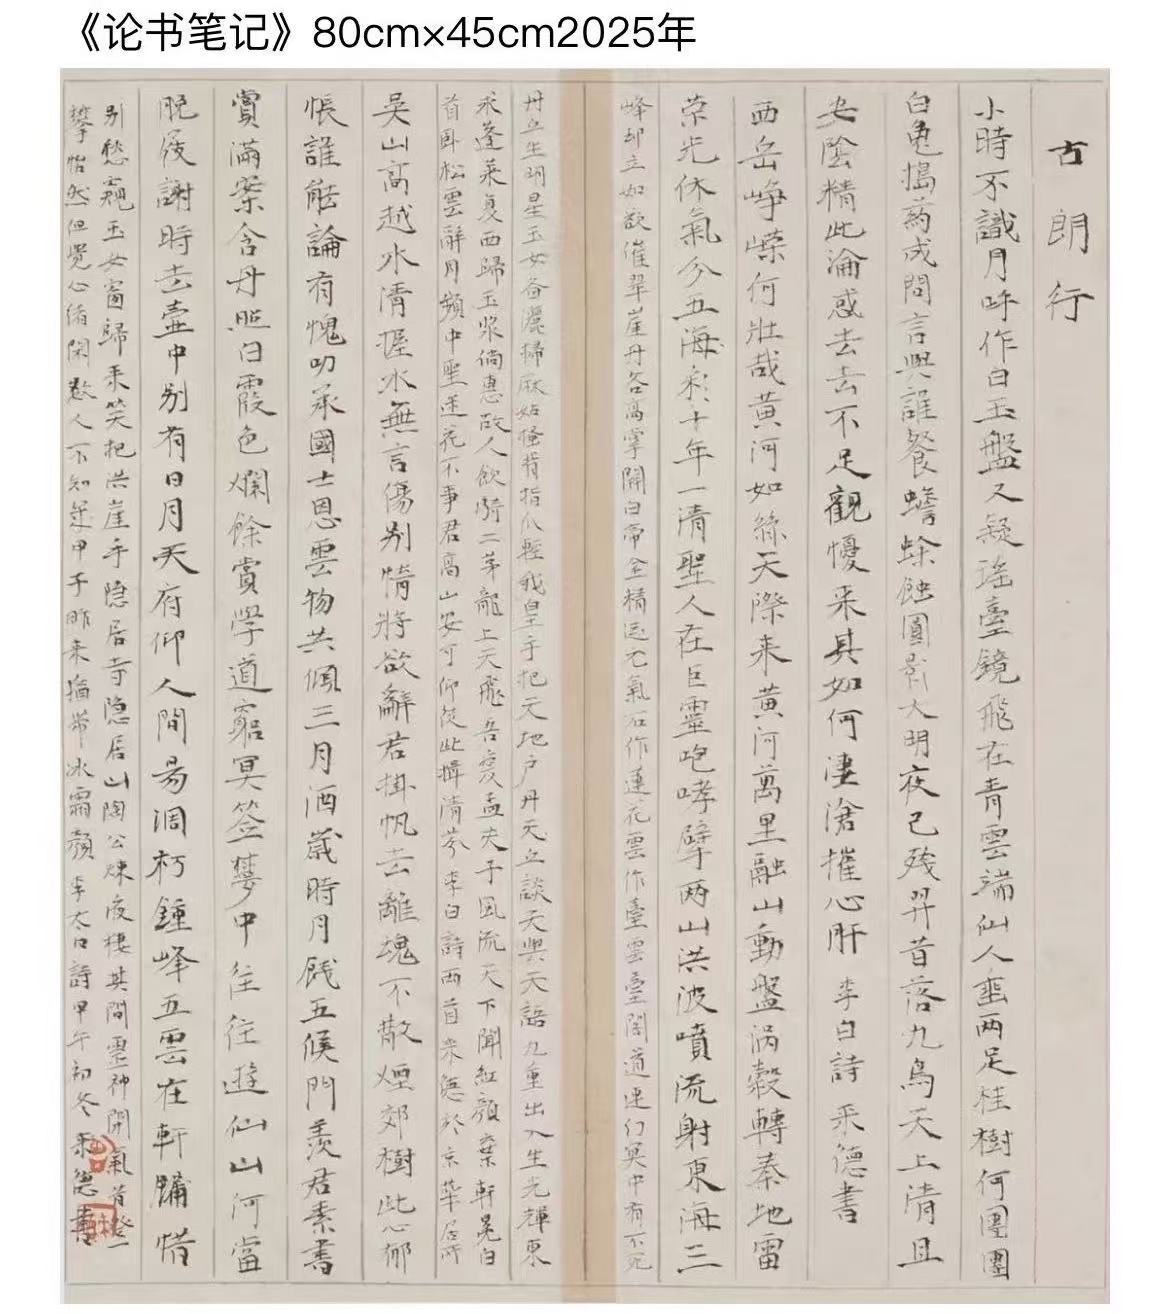 《论书笔记》80cm×45cm2025年
古朗行
小時不識月呼作白玉盤又疑瑤臺鏡飛在青雲端仙人垂两足桂樹何團團
白兔搗药成問言與誰餐蟾蜍蝕圓影大明夜已残羿昔落九烏天上清且
安陰精此淪惑去去不足觀憂来其如何淒滄摧心肝 李白詩 采德書
西岳崢嶸何壯哉黄河如絲天際来黄河萬里融山動盤渦轂轉秦地雷
荣光休氣分五海彩十年一清聖人在巨靈咆哮擘两山洪波噴流射東海三
峰却立如欲催翠崖丹谷高掌開白帝金精运元氣石作蓮花雲作臺雲臺閣道連幻冥中有不死
丹丘生明星玉女备灑掃麻姑搔背指爪輕我皇手把天地户丹天丘談天與天語九重出入生光輝東
求蓬萊复西歸玉漿倘惠故人飲騎二茅龍上天飛吾爱孟夫子風流天下聞紅顏棄軒冕白
首卧松雲醉月頻中聖迷花不事君高山安可仰從此揖清芬 李白詩两首采德於京華居所
吴山高越水清握水無言傷别情將欲辭君掛帆去離魂不散煙郊樹此心郁
悵誰能論有愧叨承國士恩雲物共傾三月酒歲時月餞五候門羨君素書
賞滿案含丹照白霞色爛餘賞學道窮冥筌夢中往往遊仙山何當
脱屐謝時去壺中别有日月天府仰人間易凋朽鍾峰五雲在軒牖惜
别愁窺玉女窗歸来笑把洪崖手隐居寺隐居山陶公煉液棲其間靈神閉氣昔登一
攀怡然但覺心绪閑数人不知幾甲子昨来猶带冰霜顏 李太白詩甲午初冬 采德書